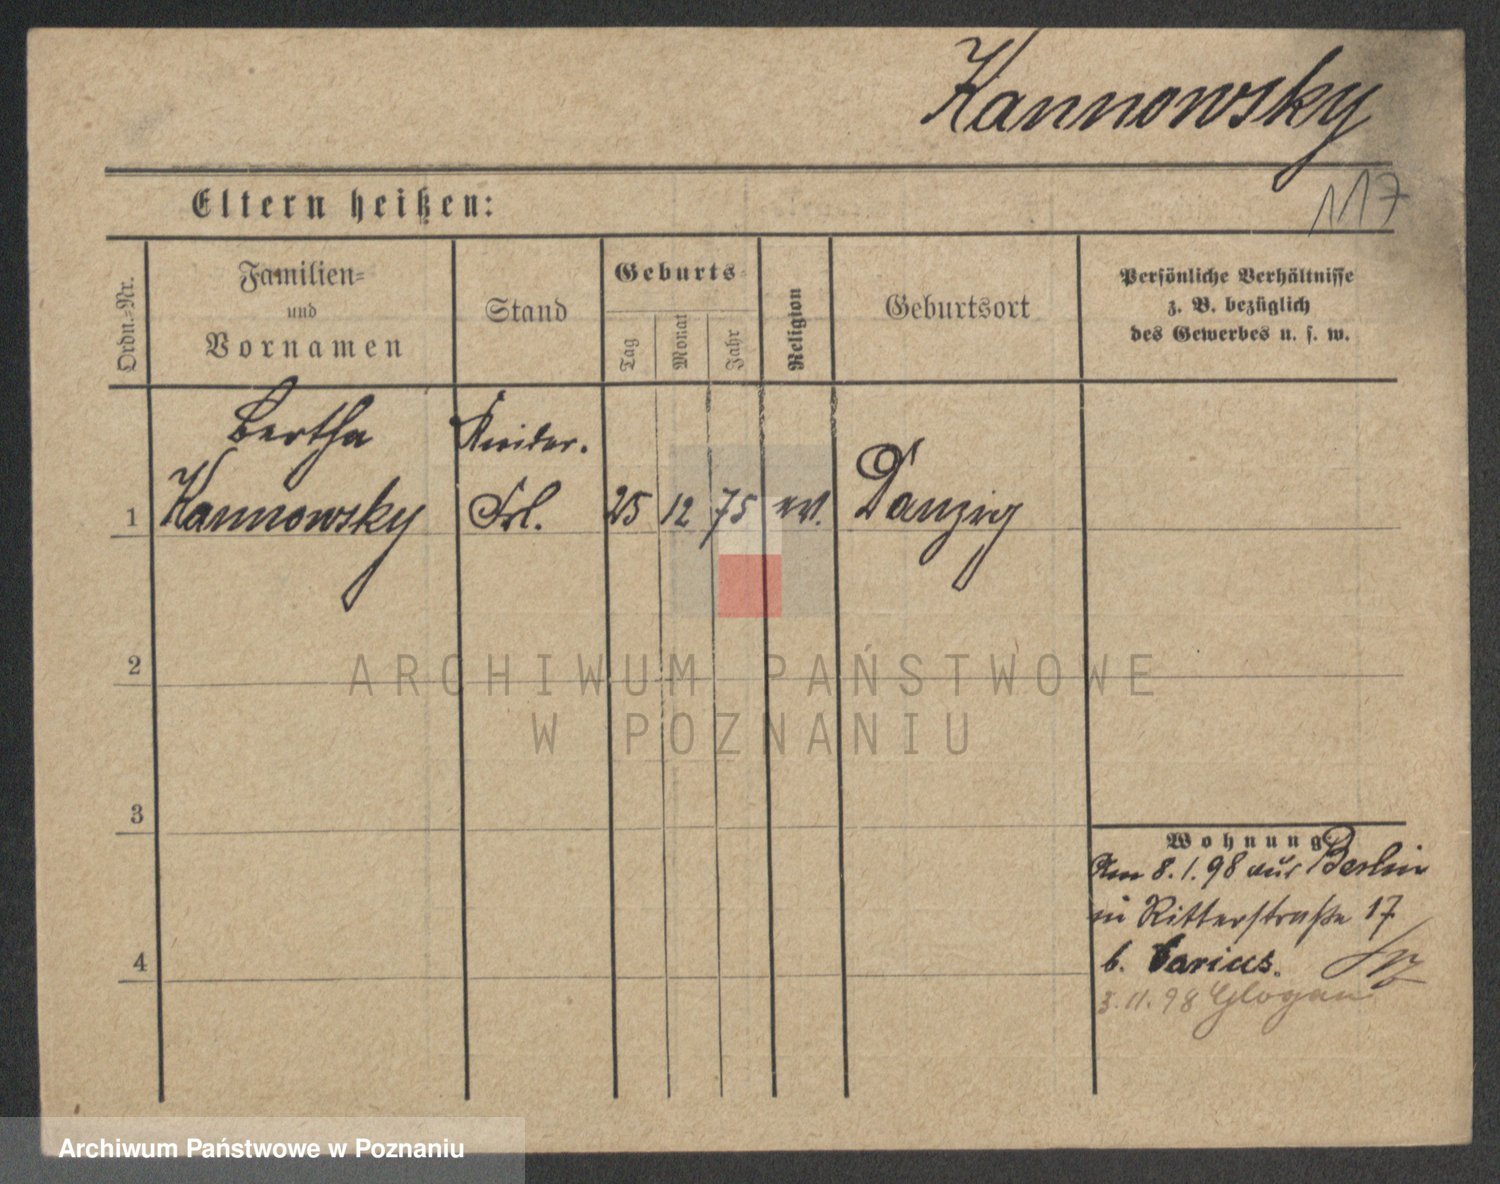 Kannowsky
117
Eltern heißen:
Ordn.-Nr.
Familien-
und
Vornamen
Stand
Geburts-
Tag
Monat
Jahr
Religion
Geburtsort
Persönliche Verhältnisse
z. B. bezüglich
des Gewerbes u. s. w.
Bertha
1 Kannowsky Frl. 25 12 75 ev. Danzig
2
3
4
Wohnung
Am 8.1.98 aus Berlin
in Ritterstraße 17
b. Darius.
3.11.98 Glogau
ARCHIWUM PAŃSTWOWE
W POZNANIU
Archiwum Państwowe w Poznaniu